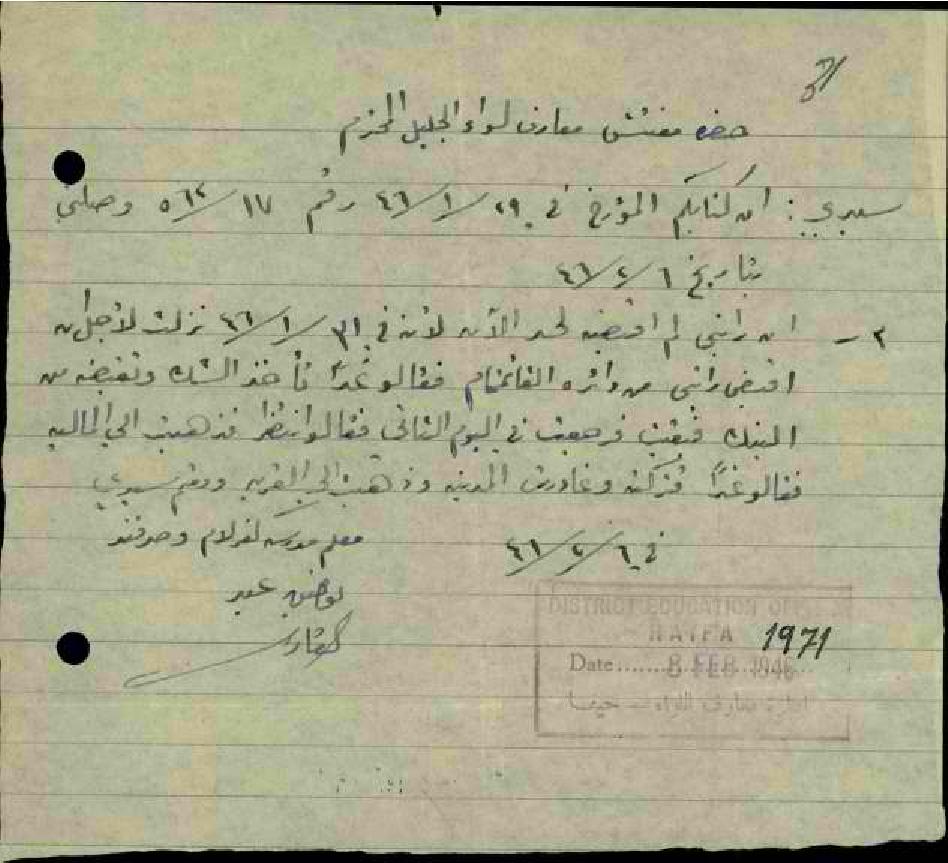 حضرة مفتش معارف لواء الجليل المحترم
سيدي: ان كتابكم المؤرخ في ٢٩/١/٤٦ رقم ١٧/٥٦٢ وصلني
بتاريخ ٦/٢/٤٦
٢ـ ان راتبي لم اقبضه لحد الآن لأنه في ٣١/١/٤٦ نزلت لأجل ان
اقبض راتبي من دائرة القائمقام فقالو غداً تأخذ الشك وتقبضه من
البنك فبقيت فرجعت في اليوم الثاني فقالو انتظر فذهبت الى الماليه
فقالو غداً فتركته وغادرت المدينه وذهبت الى القريه ودمتم سيدي
في ٦/٢/٤٦
معلم مدرسة كفرلام وصرفند
عبد
DISTRICT EDUCATION
HAIFA
1971
Date 8 FEB 1946
معارف اللواء - حيفا